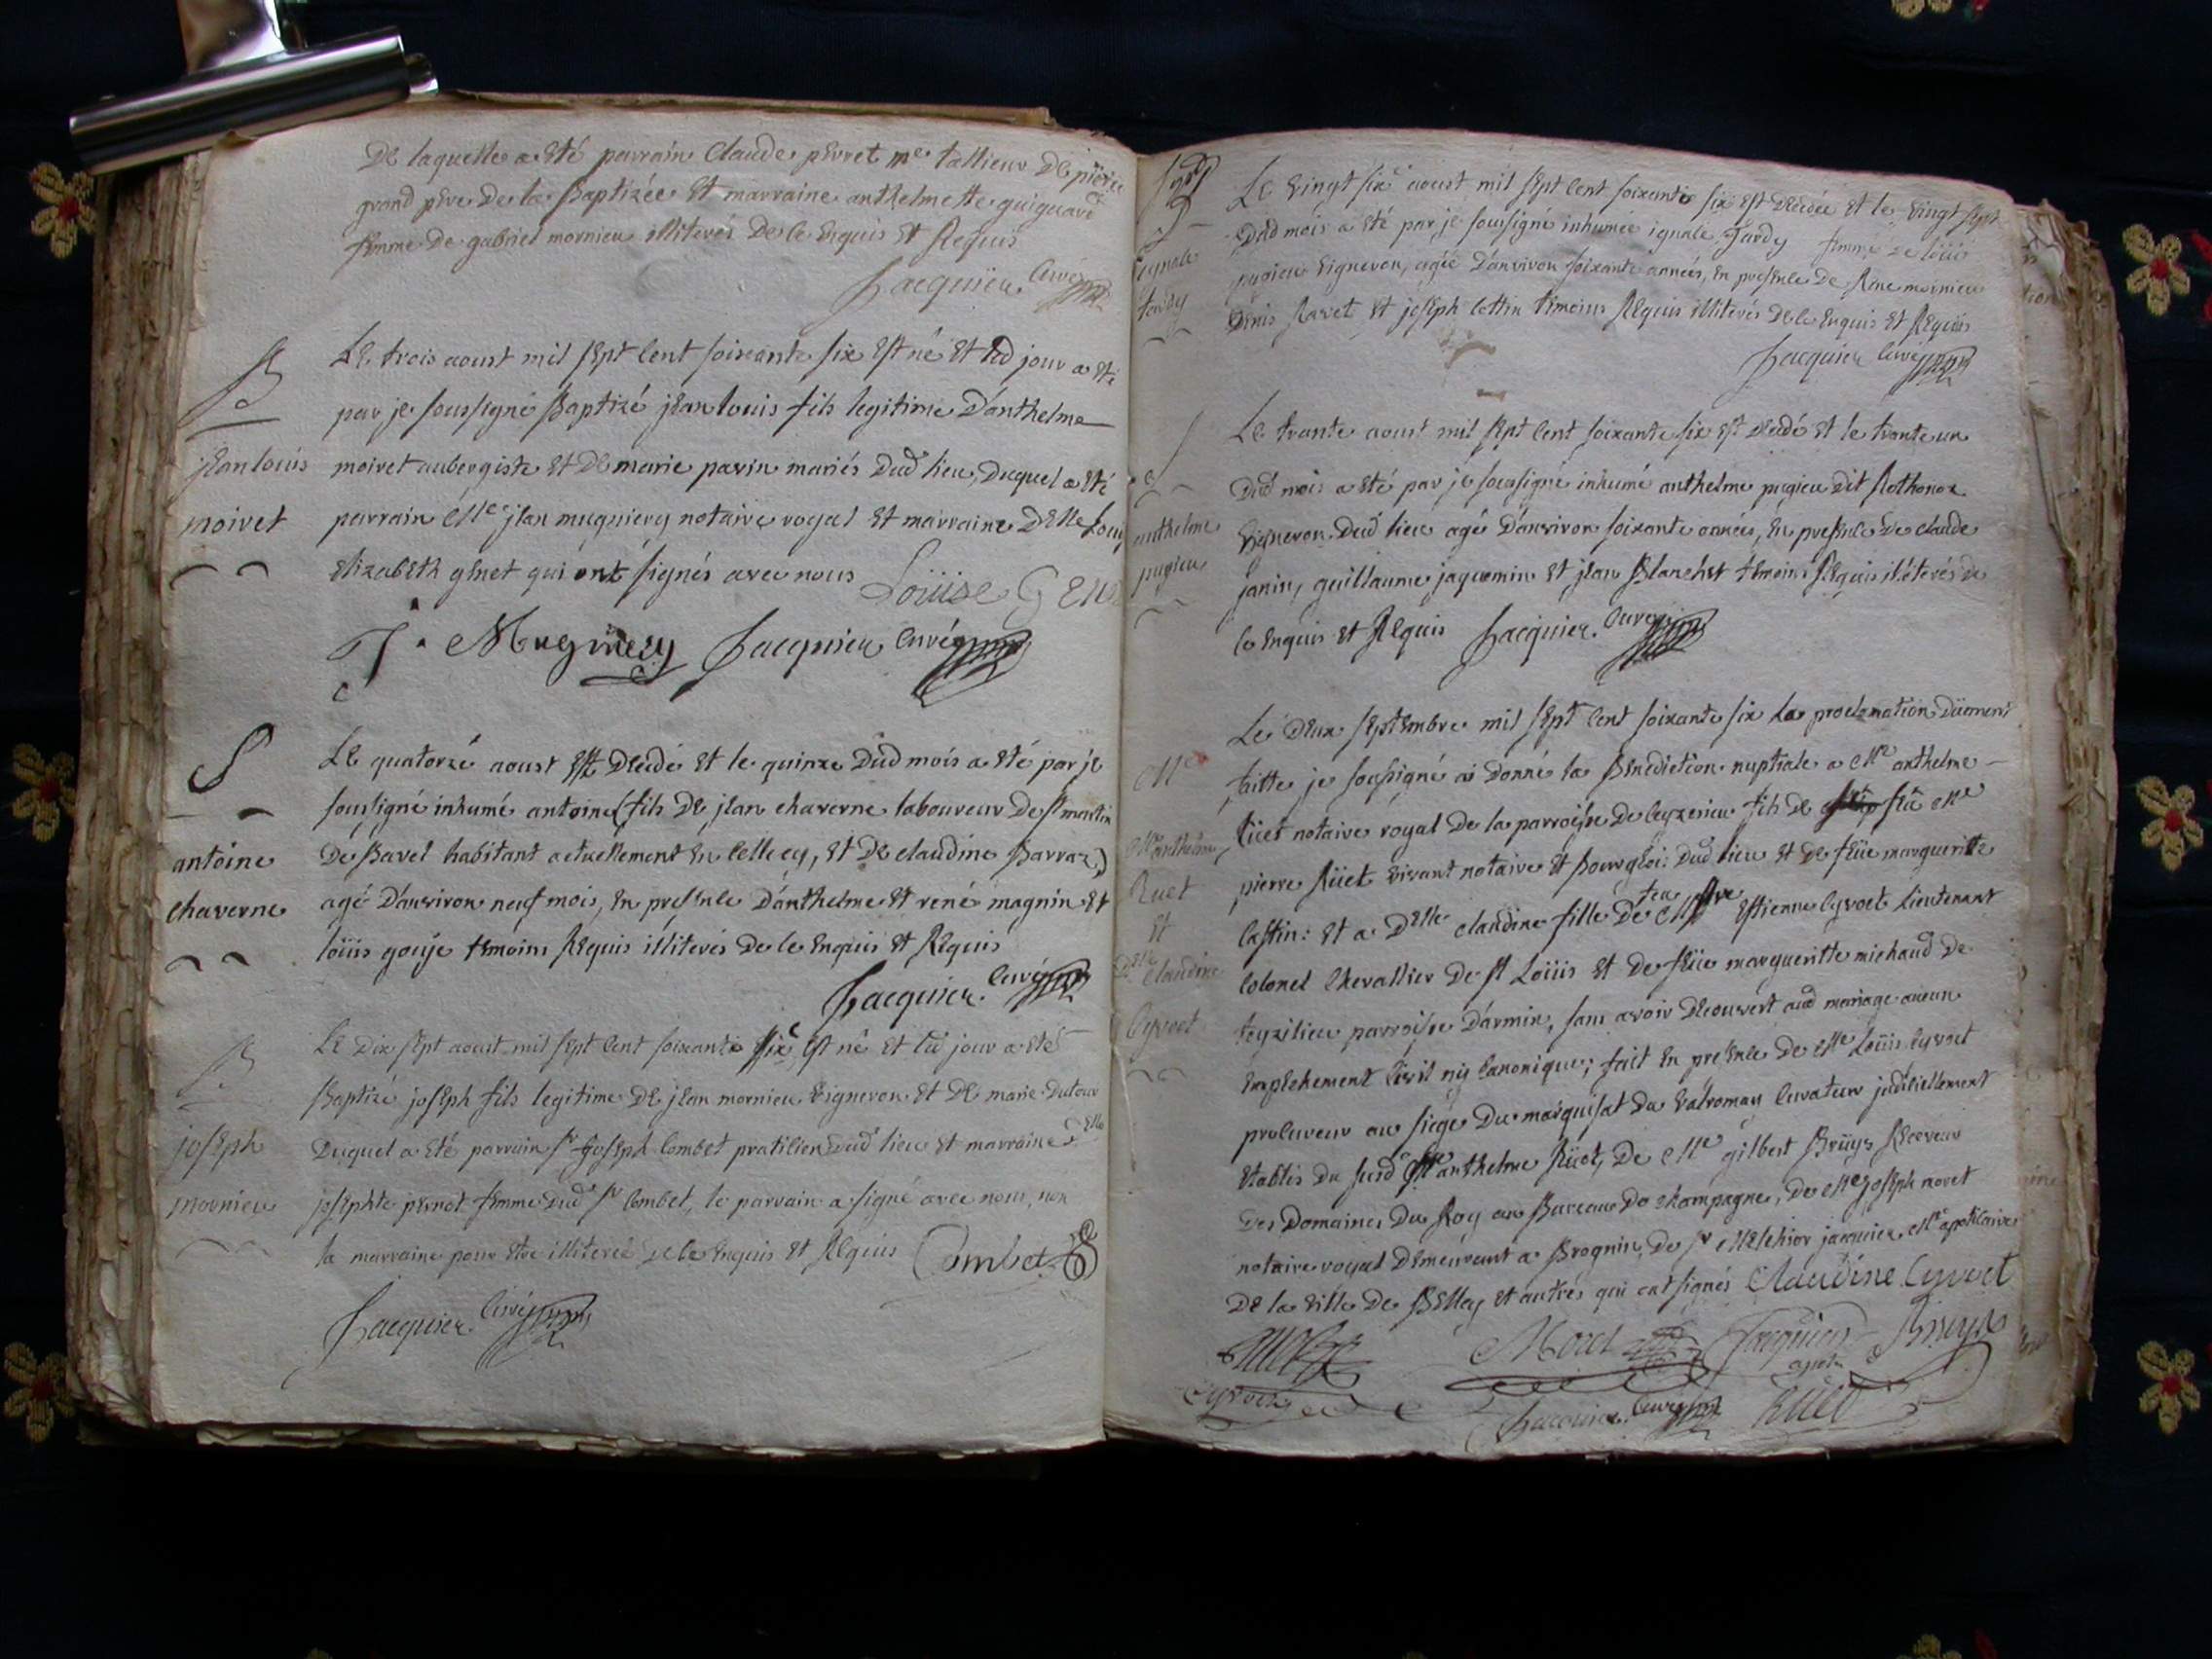 De laquelle a eté parrain Claude perret me tallieur de pierre
grand pere de la Baptizée et marraine anthelmette guiguard
femme de gabriel mornieu illiterés de le enquis et Requis
Jacquier curé
B
jean louis
moiret
Le trois aoust mil sept cent soixante six est né et led jour a eté
par je soussigné Baptizé jean louis fils legitime d'anthelme
moiret aubergiste et de marie parin mariés dud lieu, duquel a eté
parrain Me jean mugniery notaire royal et marraine Delle Louise
elizabeth genet qui ont signés avec nous Loüise Gen
J. Mugniery Jacquier curé
S
antoine
chaverne
Le quatorze aoust est decedé et le quinze dud mois a eté par je
soussigné inhumé antoine (fils de jean chaverne laboureur de st martin
de Bavel habitant actuellement en , et de claudine Barraz)
agé d'anviron neuf mois, en presence d'anthelme et rené magnin et
loüis gouje temoins Requis illiterés de le enquis et Requis
Jacquier curé
B
joseph
mornieu
Le dix sept aoust mil sept cent soixante six est né et led jour a eté
Baptizé joseph fils legitime de jean mornieu vigneron et de marie dutour
duquel a eté parrain sr joseph Combet praticien dud lieu et marraine delle
josephte pernet femme dud sr Combet, le parrain a signé avec nous, non
la marraine pour etre illiteree de le enquis et Requis Combet
Jacquier curé
S
tardy
Le vingt six aoust mil sept cent soixante six est decedée et le vingt sept
dud mois a eté par je soussigné inhumée tardy femme de loüis
pugieu vigneron, agée d'anviron soixante années, en presence de Rene mornieu
Denis Ravet et joseph cottin temoins Requis illiterés de le enquis et Requis
Jacquier curé
S
anthelme
pugieu
Le trante aoust mil sept cent soixante six est decedé et le trante un
dud mois a eté par je soussigné inhumé anthelme pugieu dit Rothonox
vigneron dud lieu agé d'anviron soixante années, en presence de claude
janin, guillaume jaquemin et jean Blanchet temoins Requis illiterés de
le enquis et Requis Jacquier curé
Me
Me anthelme
Rüet
et
Delle
claudine
Cyvoct
Le deux septembre mil sept cent soixante six La proclamation düement
faitte je soussigné ai donné la Benediction nuptiale a Me anthelme
Rüet notaire royal de la parroisse de Ceyzerieu fils de feu Me
pierre Rüet vivant notaire et Bourgeois dud lieu et de feüe margueritte
Castin: et a Delle claudine fille de feu Messire Estienne Cyvoct Lieutenant
Colonel Chevallier de st Loüis et de feüe margueritte michaud de
feyzilieu parroisse d'armin, sans avoir decouvert aud mariage aucun
empechement Civil ny Canonique; fait en presence de Me Loüis Cyvoct
procureur au siege du marquisat du valromay Curateur judiciellement
etablis du susd Me anthelme Rüet, de Me gilbert Brüys Receveur
des Domaines du Roy au Bureau de champagne, de Me joseph moret
notaire royal demeurant a Brognin, de sr Melchior jacquier Me apothicaire
de la ville de Belley et autres qui ont signés Claudine Cyvoct
Moret Jacquier Bruys
apot.
Cyvoct Jacquier curé Ruet